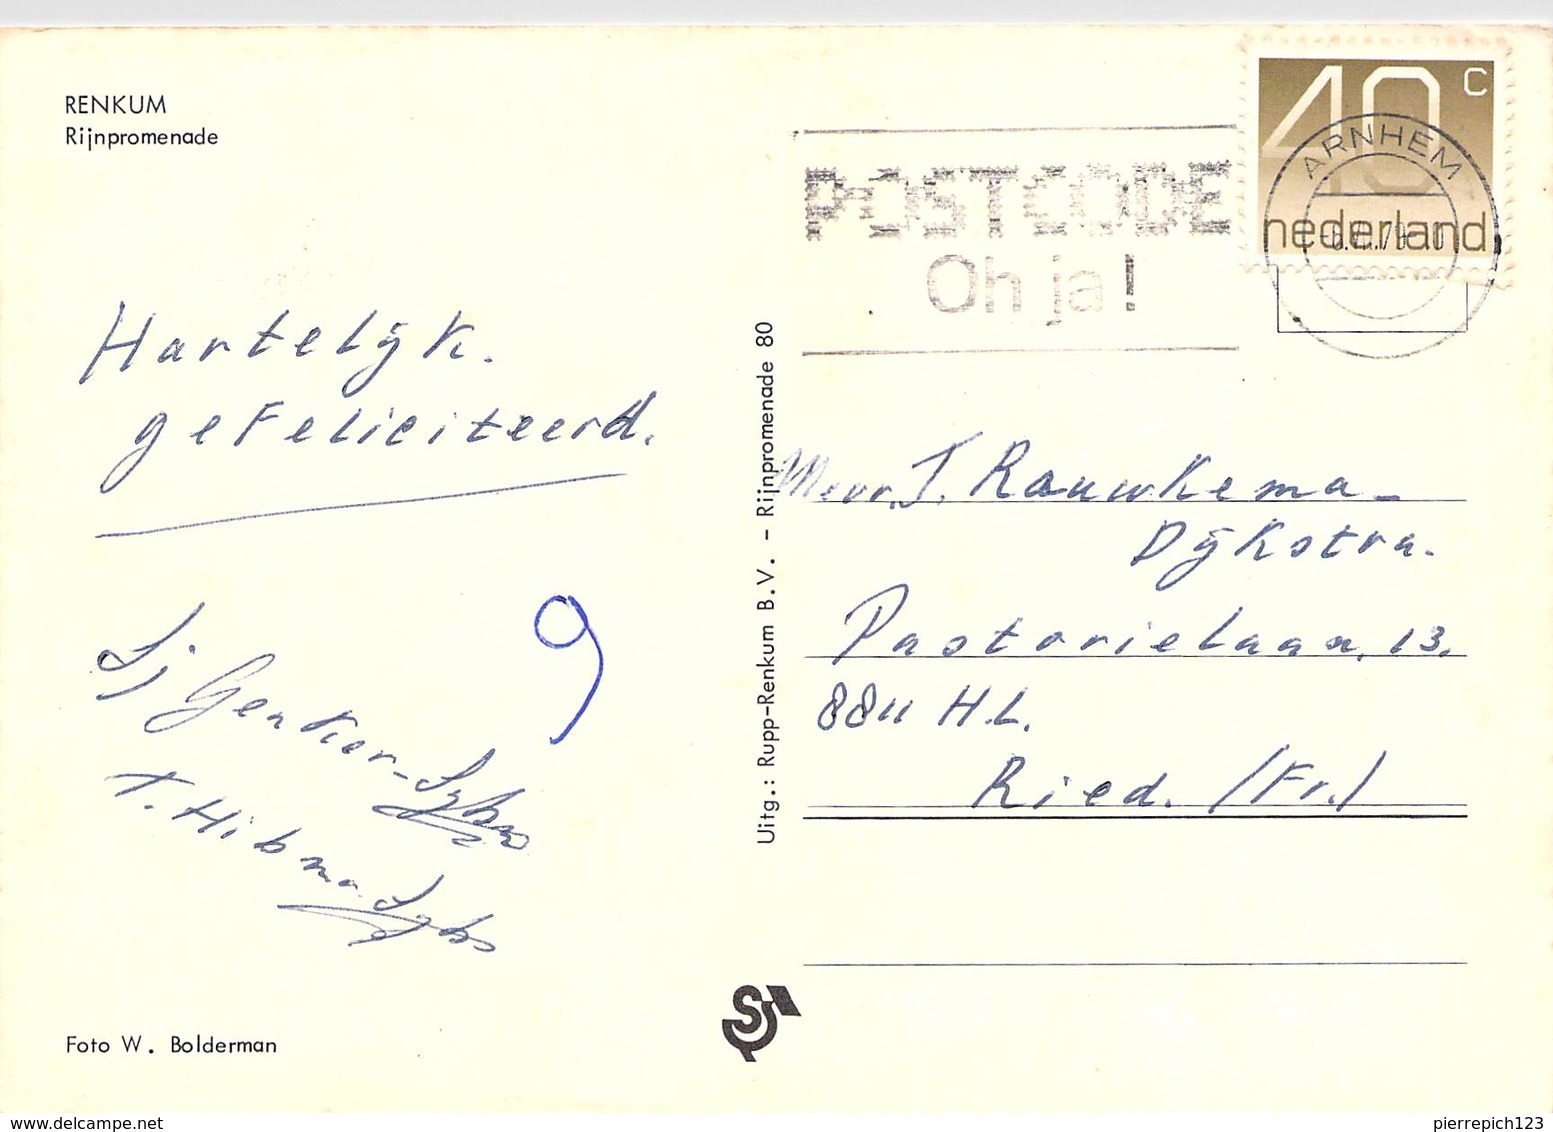 RENKUM
Rijnpromenade
40 c
nederland
ARNHEM
POSTCODE
Oh ja!
Hartelijk.
gefeliciteerd.
9
Sj Genker-
T. Hibma.
Foto W. Bolderman
Uitg.: Rupp-Renkum B.V. - Rijnpromenade 80
Mevr. T. Rauwkema -
Dijkstra.
Pastorielaan. 13.
8811 H.L.
Ried. (Fr.)
pierrepich123